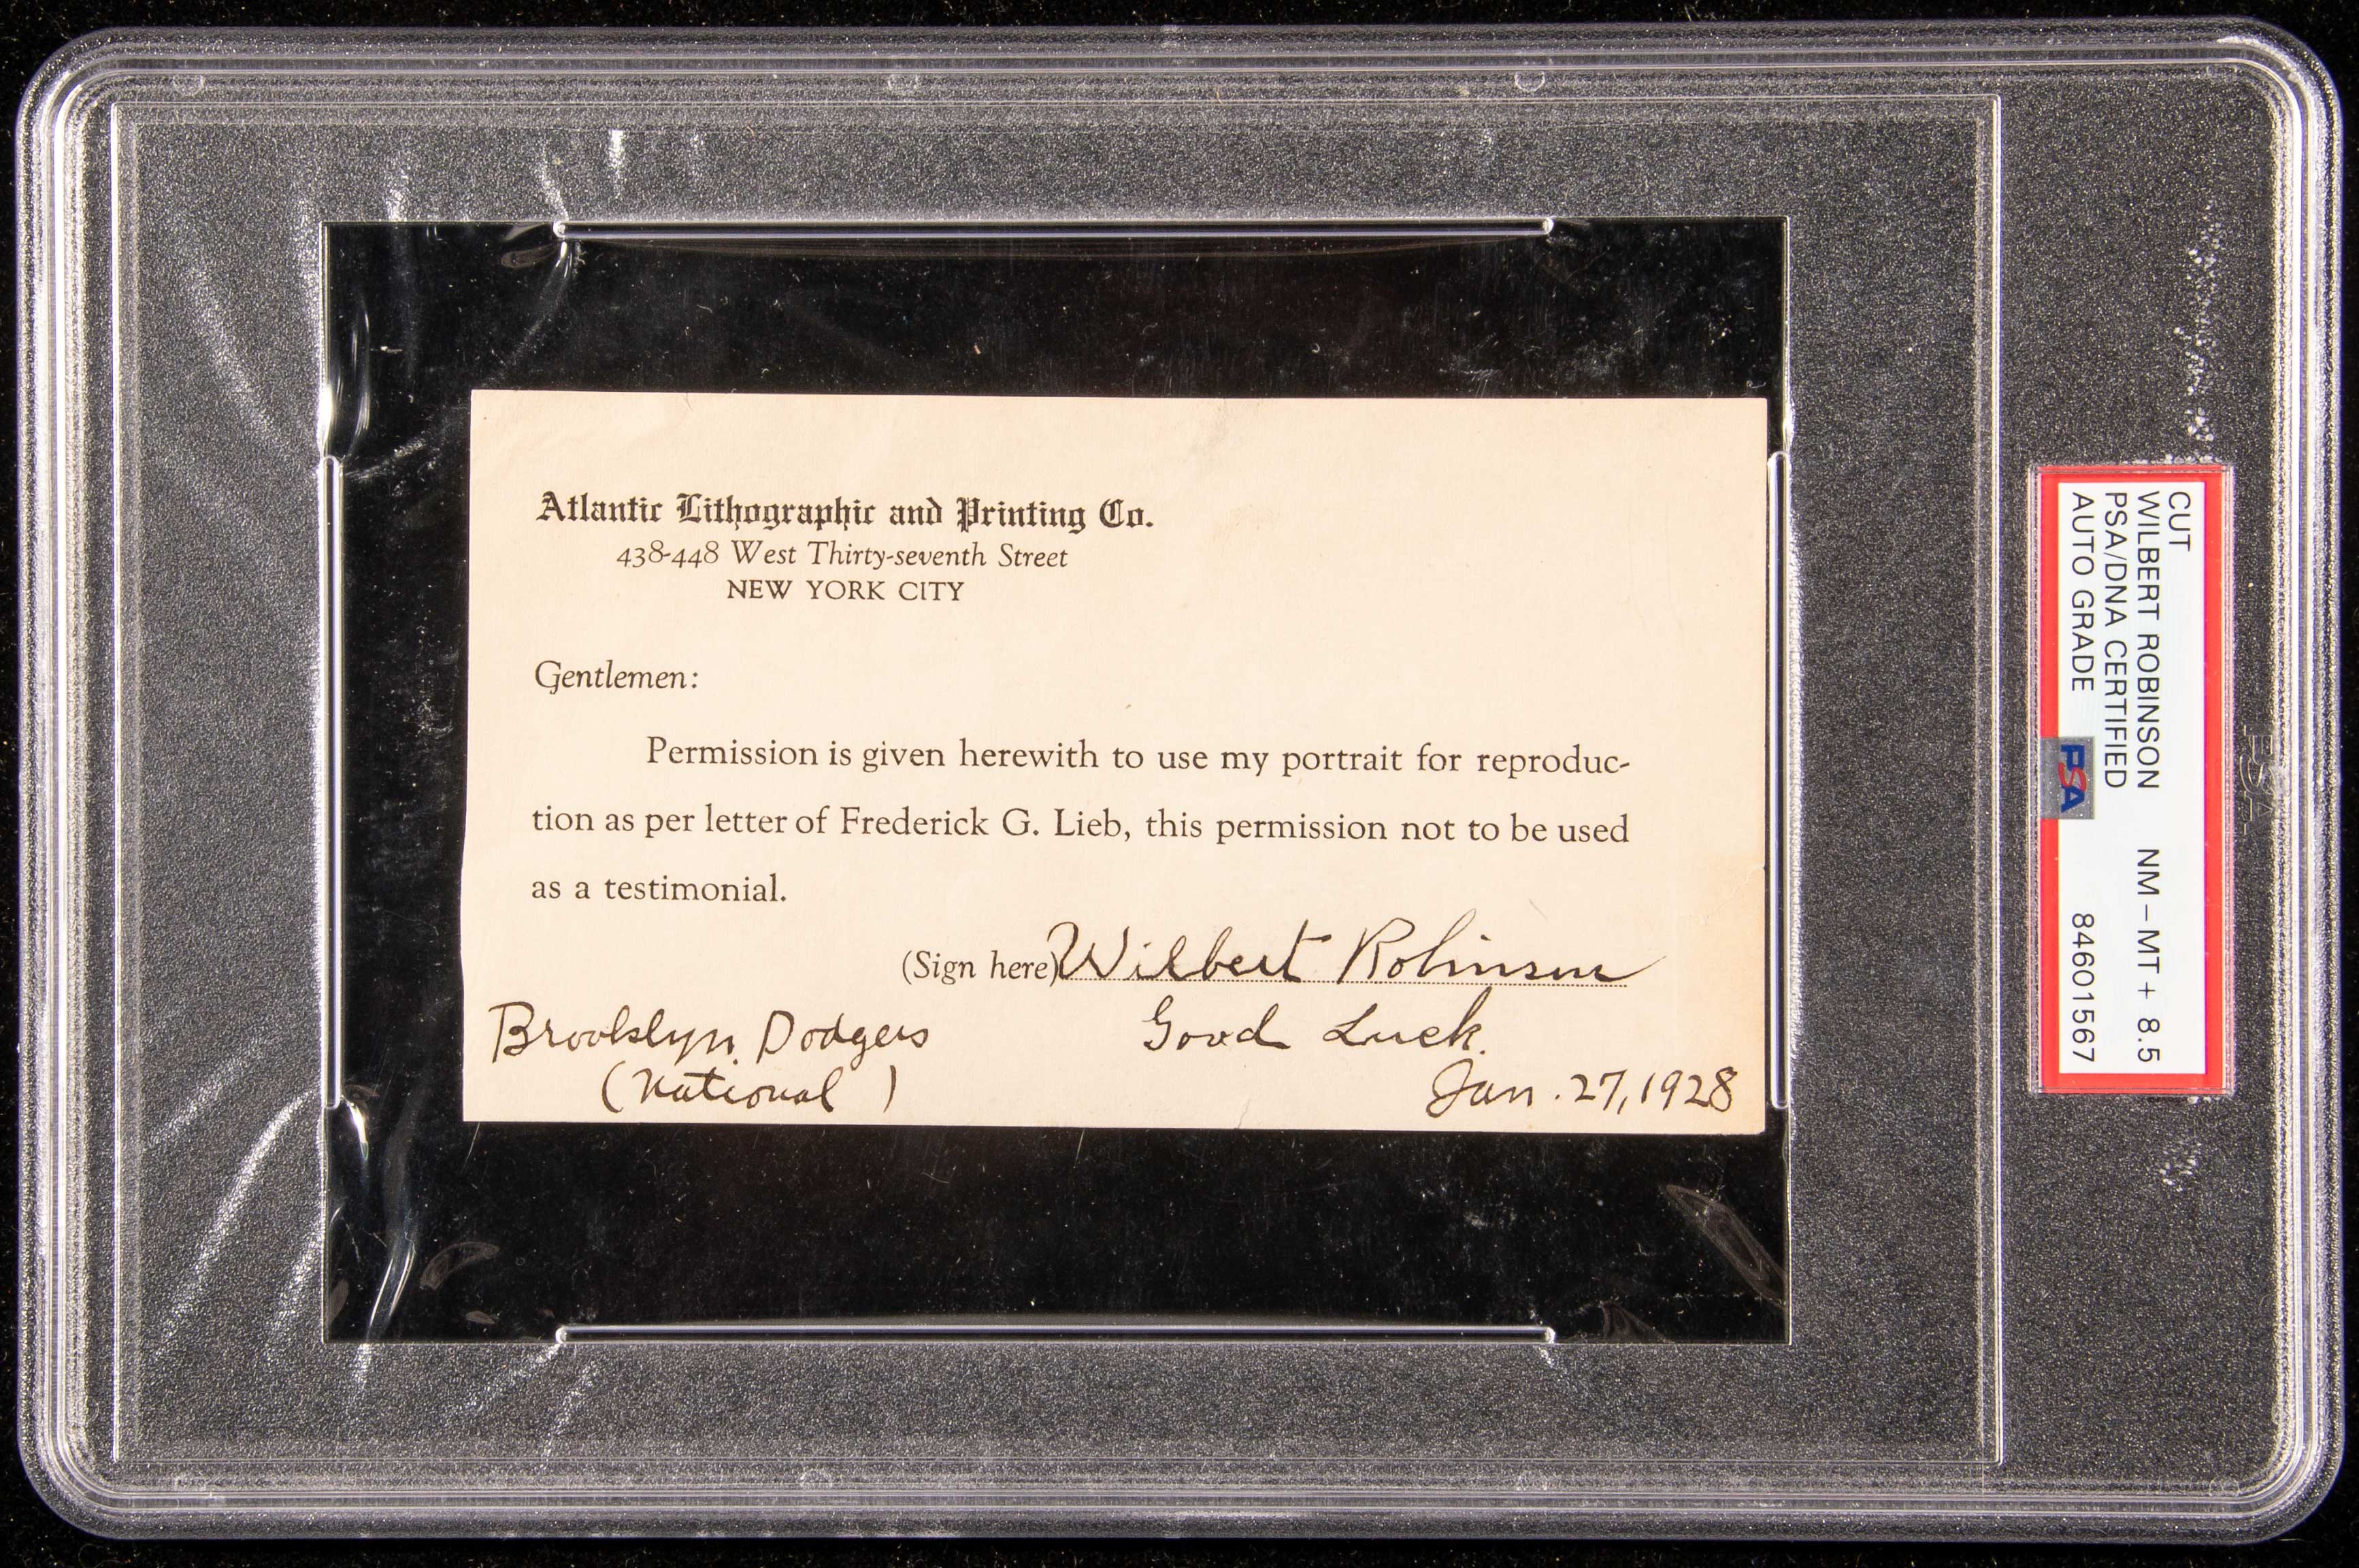 Atlantic Lithographic and Printing Co.
438-448 West Thirty-seventh Street
NEW YORK CITY
Gentlemen:
Permission is given herewith to use my portrait for reproduc-
tion as per letter of Frederick G. Lieb, this permission not to be used
as a testimonial.
(Sign here) Wilbert Robinson
Brooklyn Dodgers Good Luck.
(National) Jan. 27, 1928
CUT
WILBERT ROBINSON NM-MT+ 8.5
PSA/DNA CERTIFIED
AUTO GRADE 84601567
PSA